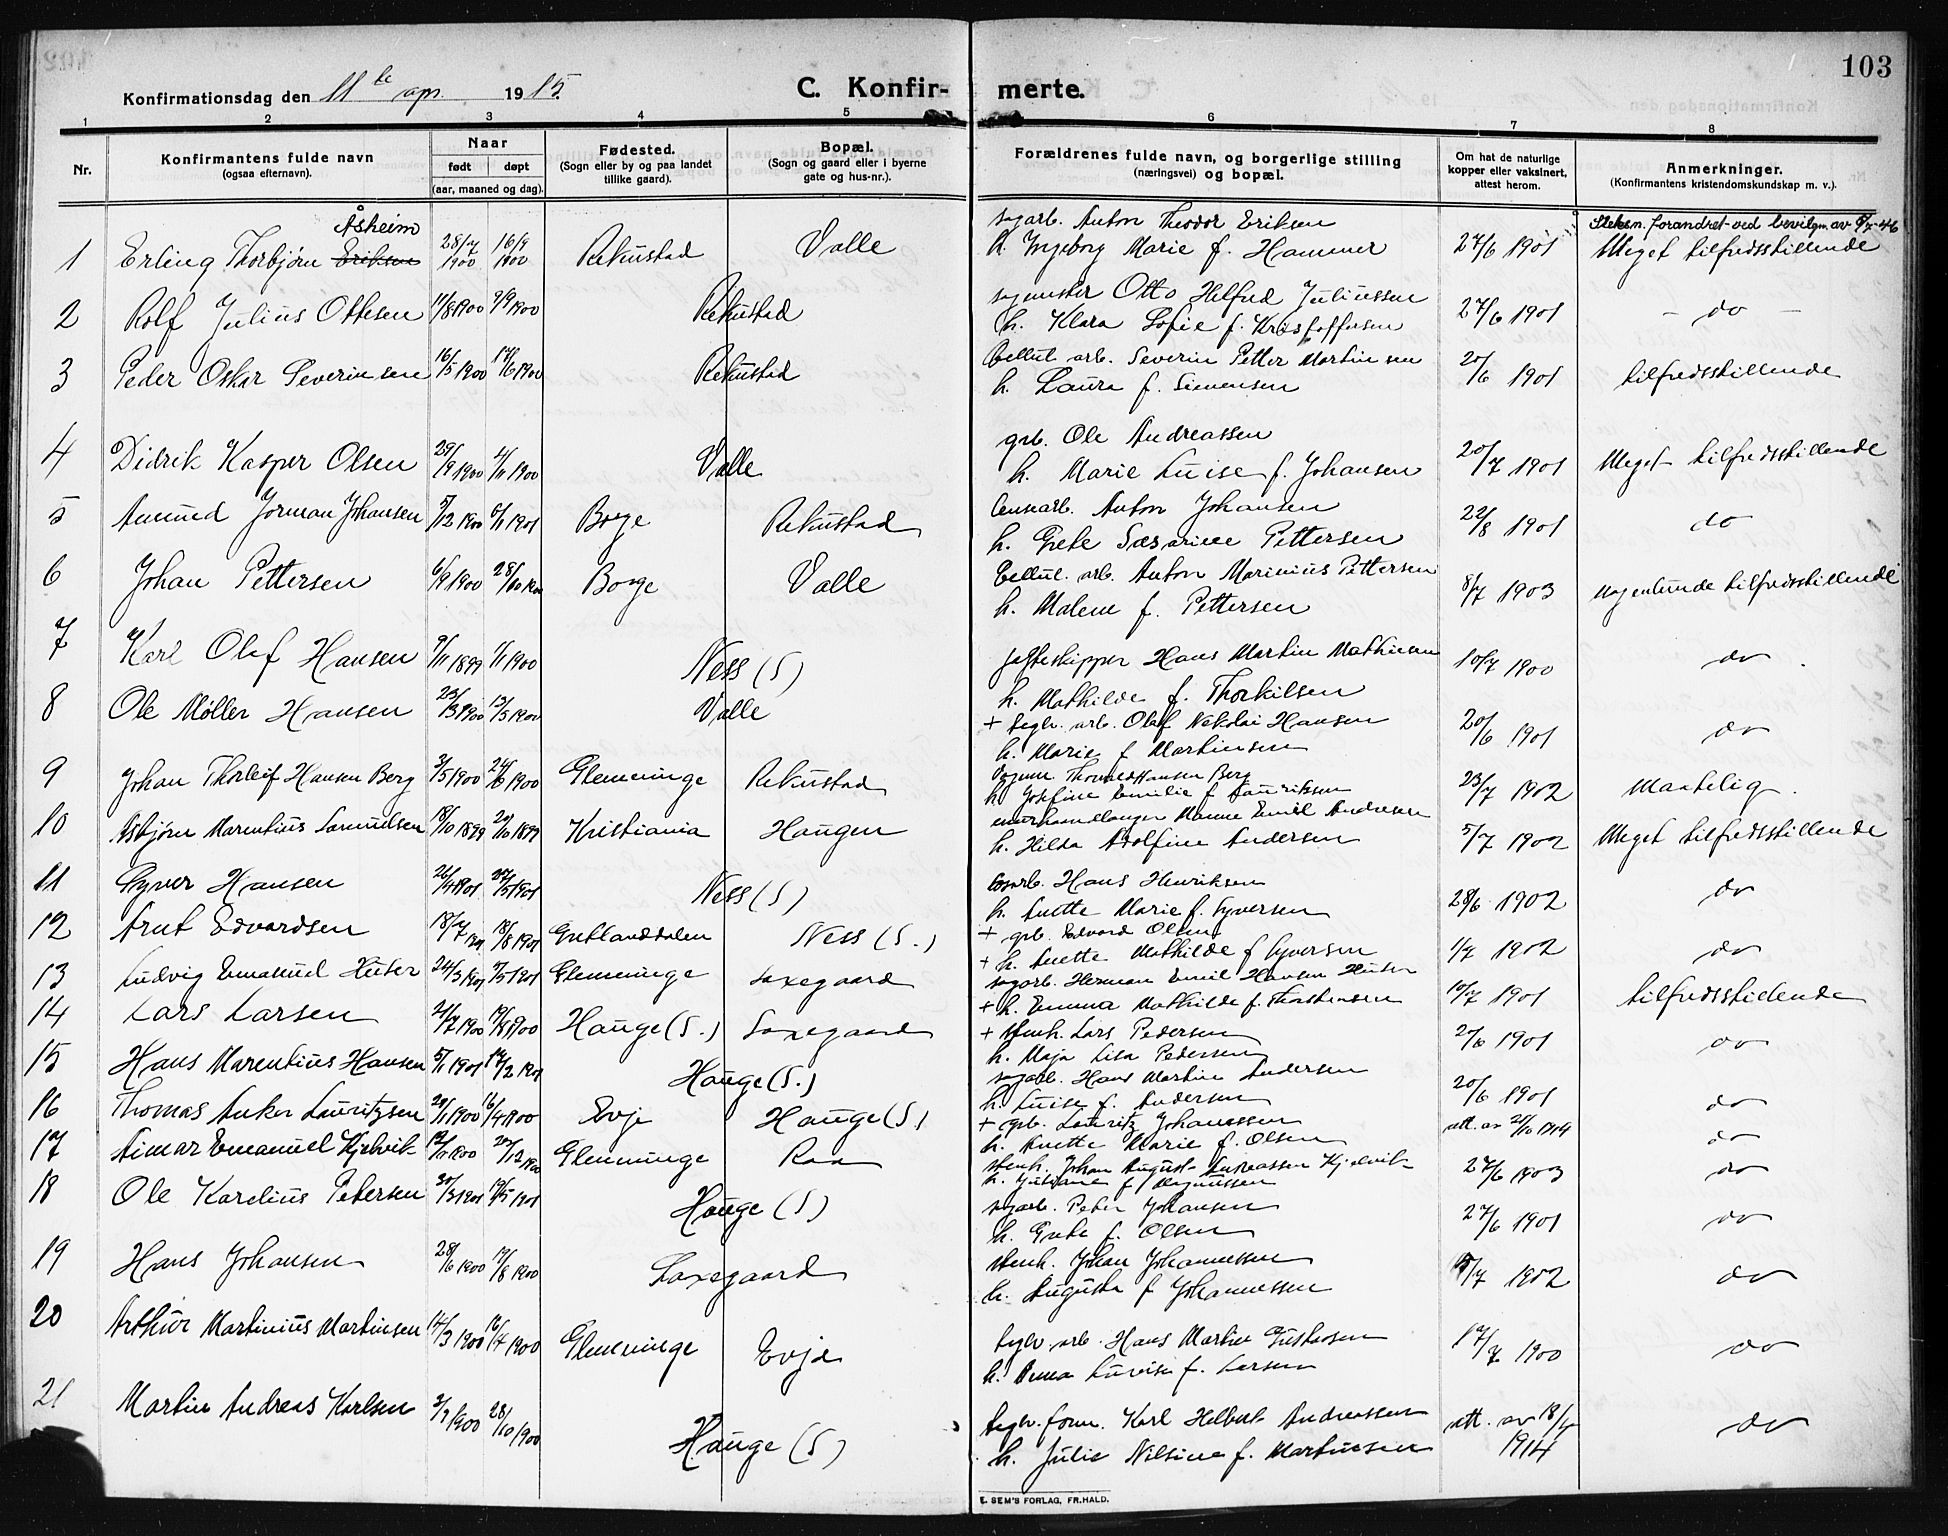 103
Konfirmationsdag den 11te apr. 1915.
C. Konfirmerte.
1 2 3 4 5 6 7 8
Nr.
Konfirmantens fulde navn
(ogsaa efternavn).
Naar
født døpt
(aar, maaned og dag).
Fødested.
(Sogn eller by og paa landet
tillike gaard).
Bopæl.
(Sogn og gaard eller i byerne
gate og hus-nr.).
Forældrenes fulde navn, og borgerlige stilling
(næringsvei) og bopæl.
Om hat de naturlige
kopper eller vaksinert,
attest herom.
Anmerkninger.
(Konfirmantens kristendomskundskap m. v.).
Åsheim
1 Erling Thorbjørn Eriksen 28/7 1900 16/9 1900 Rekustad Valle
sagarb. Anton Theodor Eriksen
h. Ingeborg Marie f. Hammer 27/6 1901
Sleksn. forandret ved bevilgn. av
Meget tilfredsstillende
2 Rolf Julius Ottesen 11/8 1900 9/9 1900 Rekustad
sagmester Otto Helfred Juliussen
h. Klara Sofie f. Kristoffersen 27/6 1901 - do -
3 Peder Oskar Severinsen 16/5 1900 17/6 1900 Rekustad
Cellul. arb. Severin Petter Martinsen
h. Laura f. Simensen 20/6 1901 tilfredsstillende
4 Didrik Kasper Olsen 29/9 1900 4/11 1900 Valle
grb. Ole Andreassen
h. Marie Luise f. Johansen 20/7 1901 Meget tilfredsstillende
5 Amund Jorman Johansen 5/12 1900 6/1 1901 Borge Rekustad
Anton Johansen
h. Grete Sesarine Pettersen 22/8 1901 do
6 Johan Pettersen 6/9 1900 28/10 1900 Borge Valle
Cellul. arb. Anton Marinius Pettersen
h. Malene f. Pettersen 8/7 1903 nogenlunde tilfredsstillende
7 Karl Olaf Hansen 9/11 1899 1/1 1900 Ness (S)
jagteskipper Hans Martin Mathisen
h. Mathilde f. Thorkilsen 10/7 1900 do
8 Ole Møller Hansen 23/3 1900 13/5 1900 Valle
+ teglv. arb. Olaf Nekolai Hansen
h. Marie f. Martinsen 20/6 1901 do
9 Johan Thorleif Hansen Berg 3/5 1900 24/6 1900 Glemminge Rekustad
Thorvald Hansen Berg
h. Josefine Emilie f. Lauritsen 23/7 1902 Maatelig.
10 Asbjørn Marentius Samuelsen 18/10 1899 29/10 1899 Kristiania Haugen
murhandlanger Emil Andresen
h. Hilda Adolfine Andersen 5/7 1902 Meget tilfredsstillende
11 Syver Hansen 26/4 1901 27/5 1901 Ness (S)
Hans Henriksen
h. Anette Marie f. Syversen 28/6 1902 do
12 Arnt Edvardsen 18/7 1901 18/8 1901 Gretlanddalen Ness (S.)
+ grb. Edvard Olsen
+ h. Anette Mathilde f. Syversen 1/7 1902 do
13 Ludvig Emanuel Huser 24/3 1901 5/5 1901 Glemminge Saxegaard
sagarb. Herman Emil Hansen Huser
+ h. Emma Mathilde f. Thorstensen 10/7 1901 tilfredsstillende
14 Lars Larsen 21/7 1900 19/8 1900 Hauge (S.) Saxegaard
+ stenh. Lars Pedersen
h. Maja Lisa Pedersen 27/6 1901 do
15 Hans Marentius Hansen 5/1 1901 17/2 1901 Hauge (S.)
sagarb. Hans Martin Andersen
h. Luise f. Andersen 20/6 1901 do
16 Thomas Anker Lauritzsen 29/1 1900 16/4 1900 Evje Hauge (S)
+ grb. Lauritz Johanessen
h. Anette Marie f. Olsen att. av 21/10 1914 do
17 Aimar Emanuel Kjelvik 1900 1900 Glemminge Raa
stenh. Johan August Andreassen Kjelvik
h. f. Magnussen 27/6 1903 do
18 Ole Karelius Petersen 21/3 1901 19/5 1901 Hauge (S)
sagarb. Peter Johansen
h. Grete f. Olsen 27/6 1901 do
19 Hans Johansen 28/6 1900 19/8 1900 Saxegaard
stenh. Johan Johannessen
h. Augusta f. Johannessen 1902 do
20 Arthur Martinius Martinsen 14/3 1900 16/4 1900 Glemminge Evje
teglv. arb. Hans Martin Gustavsen
h. Anna Lovise f. Larsen 17/7 1900 do
21 Martin Andreas Karlsen 3/9 1900 28/10 1900 Hauge (S)
teglv. form. Karl Helbert Andreassen
h. Julie Nilsine f. Martinsen att. av 1914 do
E. SEM'S FORLAG, FR.HALD.